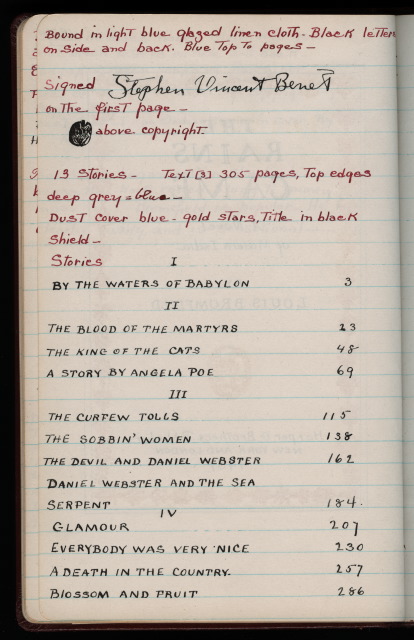 Bound in light blue glazed linen cloth - Black letters
on side and back. Blue Top To pages -
Signed Stephen Vincent Benét
on the first page -
above copyright.
13 Stories - Text [3] 305 pages, Top edges
deep grey = blue -
Dust cover blue - gold stars, Title in black
Shield -
Stories I
BY THE WATERS OF BABYLON 3
II
THE BLOOD OF THE MARTYRS 23
THE KING OF THE CATS 48
A STORY BY ANGELA POE 69
III
THE CURFEW TOLLS 115
THE SOBBIN' WOMEN 138
THE DEVIL AND DANIEL WEBSTER 162
DANIEL WEBSTER AND THE SEA
SERPENT 184
IV
GLAMOUR 207
EVERYBODY WAS VERY NICE 230
A DEATH IN THE COUNTRY. 257
BLOSSOM AND FRUIT 286